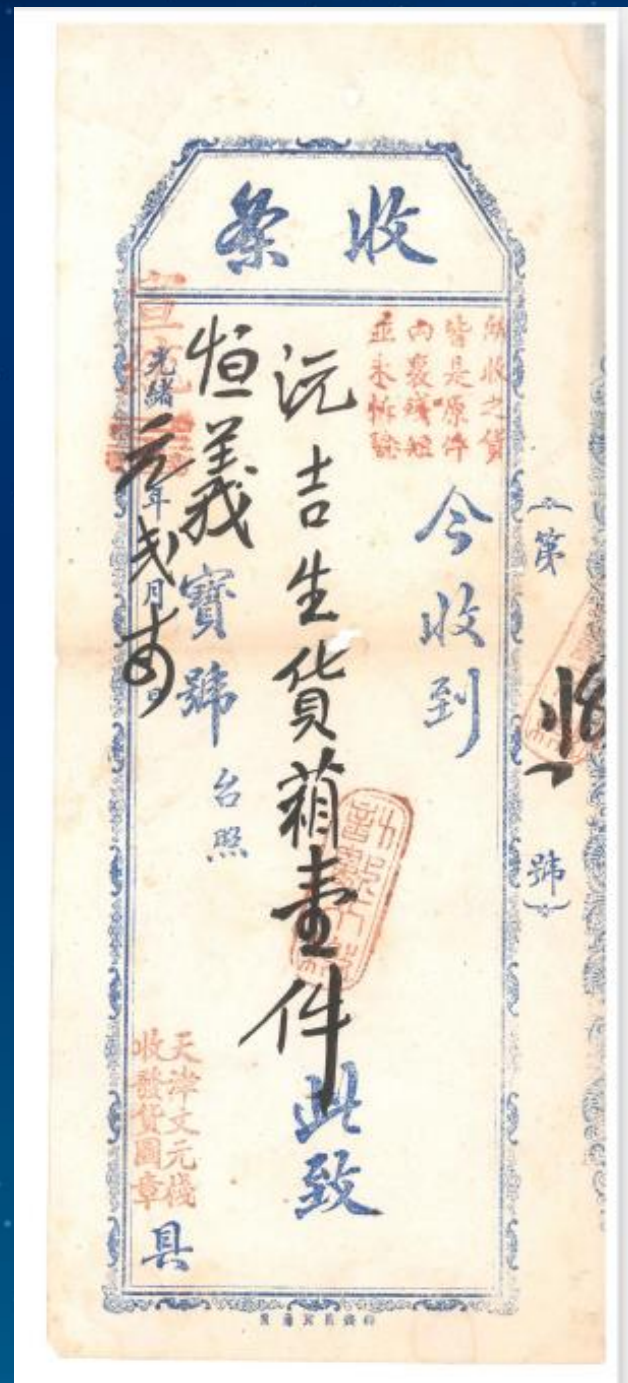 收條
所收之貨
皆是原件
內裏殘短
並未拆驗
今收到
沅吉生貨箱壹件
此致
恒義寶號
台照
宣統
光緒元年弍月日
天津文元棧
收發貨圖章
具
第
號